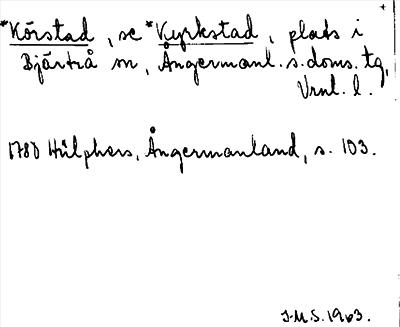 *Körstad, se *Kyrkstad, plats i
Bjärtrå sn, Ångermanl. s. doms. tg,
Vrnl. l.
1780 Hülphers, Ångermanland, s. 103.
J.M.S. 1963.